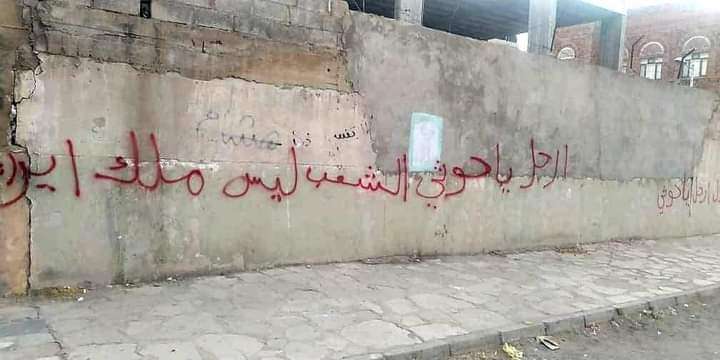 ارحل يا حوثي الشعب ليس ملك ايران
ارحل ياحوثي